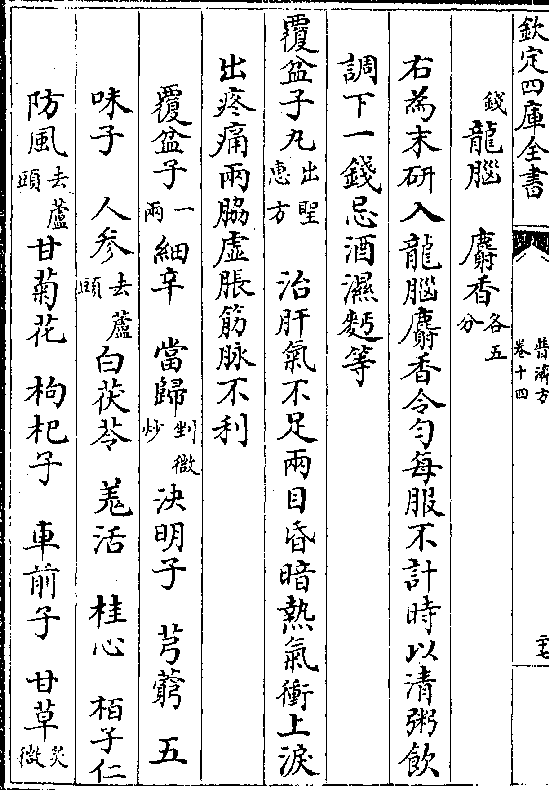 欽定四庫全書
普濟方
卷十四
二十七
錢龍腦　麝香各五分
右為末研入龍腦麝香令勻每服不計時以清粥飲
調下一錢忌酒濕麪等
覆盆子丸出聖惠方　治肝氣不足兩目昏暗熱氣衝上淚
出疼痛兩脇虛脹筋脉不利
覆盆子一兩　細辛　當歸剉微炒　決明子　芎藭　五
味子　人參去蘆頭　白茯苓　羌活　桂心　栢子仁
防風去蘆頭　甘菊花　枸杞子　車前子　甘草炙微